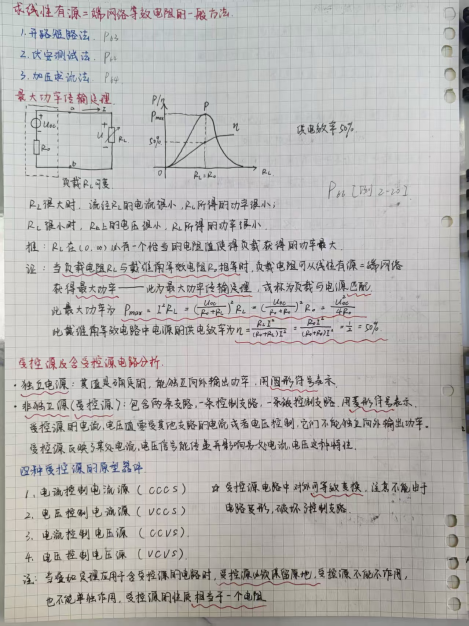 求线性有源二端网络等效电阻的一般方法
1.开路短路法. P63
2.伏安测试法. P63
3.加压求流法. P64
最大功率传输定理
P/η
Pmax P
50% η
RL=R0 RL
Uoc
R0
U RL
供电效率50%
负载RL可变
P66 [例2-23]
RL很大时, 流经RL的电流很小, RL所得的功率很小;
RL很小时, RL上的电压很小, RL所得的功率很小
推: RL在(0,∞)必有一个恰当的电阻值使得负载获得的功率最大
注: 当负载电阻RL与戴维南等效电阻R0相等时, 负载电阻可从线性有源二端网络
获得最大功率——此为最大功率传输定理, 或称为负载与电源匹配
此最大功率为 Pmax = I²RL = (Uoc/(R0+RL))²RL = (Uoc/(R0+R0))²R0 = U²oc/4R0
此戴维南等效电路中电源的供电效率为η = RLI²/(R0+RL)I² = R0I²/(R0+R0)I² = 1/2 = 50%
受控源及含受控源电路分析.
· 独立电源: 其值是确定的, 能独立向外输出功率, 用圆形符号表示.
· 非独立源(受控源): 包含两条支路, 一条控制支路, 一条被控制支路, 用菱形符号表示.
受控源的电流、电压值要受其他支路的电流或者电压控制, 它们不能独立向外输出功率.
受控源反映了某处电流、电压信号能传递并影响另一处电流、电压这种特性.
四种受控源的原型器件
1. 电流控制电流源 (CCCS) ☆ 受控源电路中对外可等效变换, 注意不能由于
2. 电压控制电流源 (VCCS) 电路变形, 破坏了控制支路.
3. 电流控制电压源 (CCVS)
4. 电压控制电压源 (VCVS)
注: 当叠加定理应用于含受控源的电路时, 受控源必须保留原地, 受控源不能不作用,
也不能单独作用, 受控源的性质相当于一个电阻